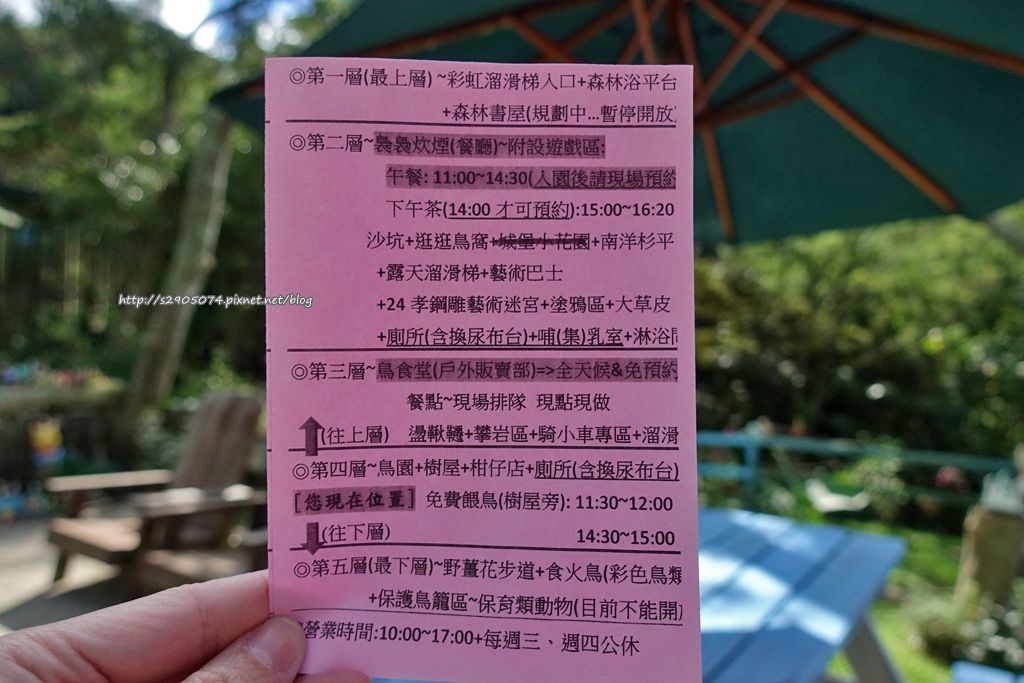 ◎第一層(最上層) ~彩虹溜滑梯入口+森林浴平台
+森林書屋(規劃中...暫停開放)
◎第二層~裊裊炊煙(餐廳)~附設遊戲區:
午餐: 11:00~14:30(入園後請現場預約
下午茶(14:00 才可預約):15:00~16:20
沙坑+逛逛鳥窩+城堡小花園+南洋杉平
+露天溜滑梯+藝術巴士
+24 孝鋼雕藝術迷宮+塗鴉區+大草皮
+廁所(含換尿布台)+哺(集)乳室+淋浴
◎第三層~鳥食堂(戶外販賣部)=>全天候&免預約
餐點~現場排隊 現點現做
(往上層) 盪鞦韆+攀岩區+騎小車專區+溜滑
◎第四層~鳥園+樹屋+柑仔店+廁所(含換尿布台)
[您現在位置] 免費餵鳥(樹屋旁): 11:30~12:00
(往下層) 14:30~15:00
◎第五層(最下層)~野薑花步道+食火鳥(彩色鳥類
+保護鳥籠區~保育類動物(目前不能開)
營業時間:10:00~17:00+每週三、週四公休
http://s2905074.pixnet.net/blog